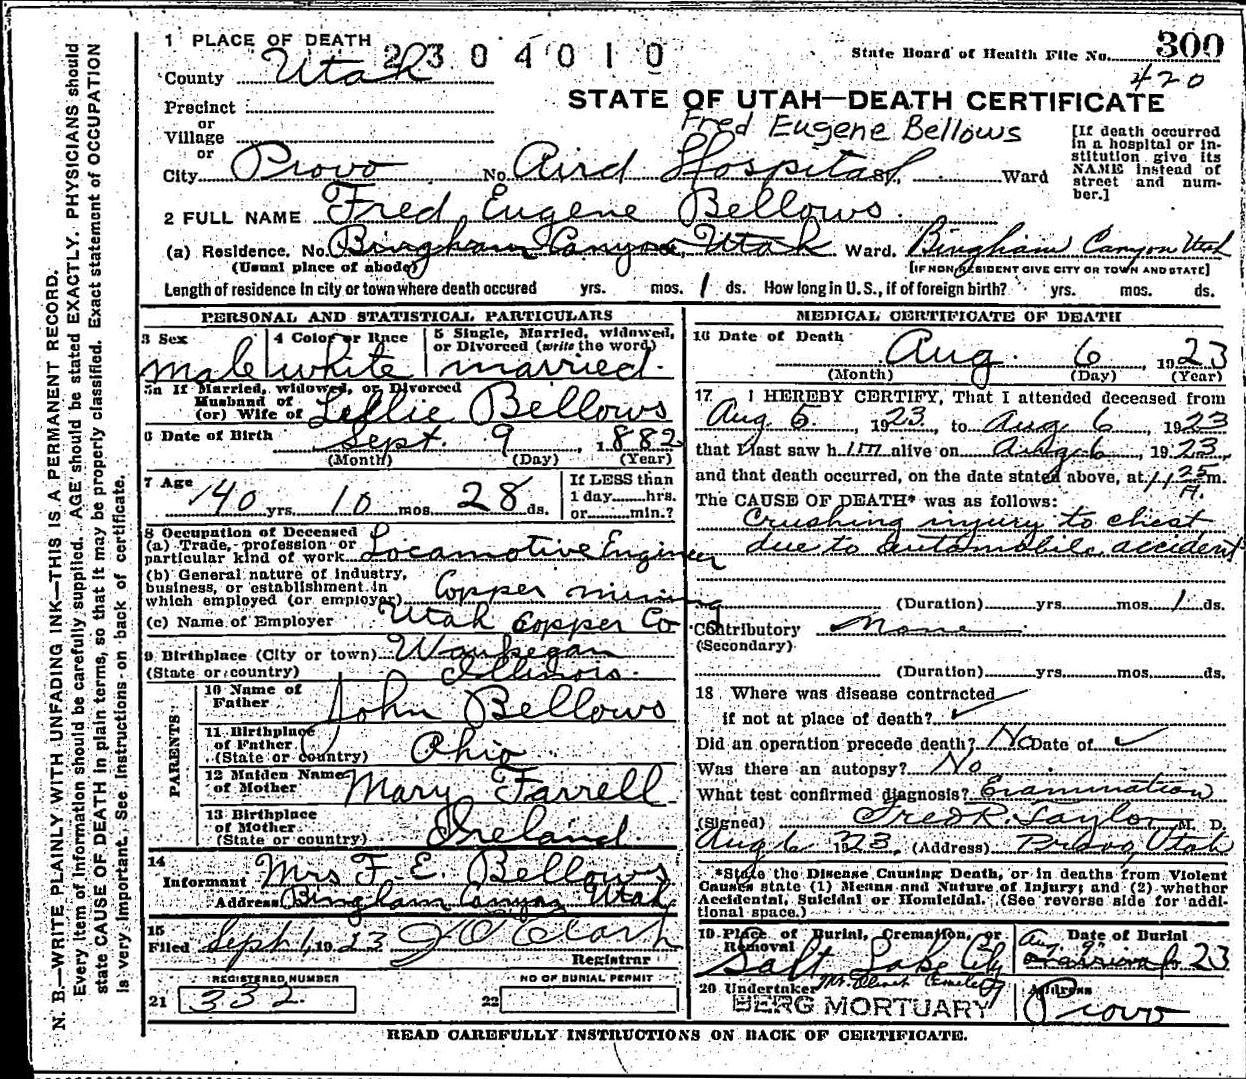 1 PLACE OF DEATH
2304010
State Board of Health File No. 300
420
County Utah
STATE OF UTAH—DEATH CERTIFICATE
Precinct
or
Village
or
Fred Eugene Bellows
City Provo No. Aird Hospital St., Ward
[If death occurred in a hospital or institution give its NAME instead of street and number.]
2 FULL NAME Fred Eugene Bellows
(a) Residence. No. Bingham Canyon, Utah Ward. Bingham Canyon Utah
(Usual place of abode) [IF NON-RESIDENT GIVE CITY OR TOWN AND STATE]
Length of residence in city or town where death occured yrs. mos. 1 ds. How long in U.S., if of foreign birth? yrs. mos. ds.
PERSONAL AND STATISTICAL PARTICULARS
3 Sex male
4 Color or Race white
5 Single, Married, widowed, or Divorced (write the word) married.
5a If Married, widowed, or Divorced
Husband of
(or) Wife of Lellie Bellows
6 Date of Birth Sept. 9, 1882
(Month) (Day) (Year)
7 Age 40 yrs. 10 mos. 28 ds.
If LESS than
1 day hrs.
or min.?
8 Occupation of Deceased
(a) Trade, profession or
particular kind of work Locomotive Engineer
(b) General nature of industry,
business, or establishment in
which employed (or employer) Copper mining
(c) Name of Employer Utah Copper Co
9 Birthplace (City or town) Waukegan
(State or country) Illinois.
PARENTS
10 Name of
Father John Bellows
11 Birthplace
of Father
(State or country) Ohio
12 Maiden Name
of Mother Mary Farrell
13 Birthplace
of Mother
(State or country) Ireland.
14
Informant Mrs F. E. Bellows
Address Bingham Canyon Utah
15
Filed Sept 1, 1923 J O Clark
Registrar
REGISTERED NUMBER
21 332
NO OF BURIAL PERMIT
22
MEDICAL CERTIFICATE OF DEATH
16 Date of Death
Aug. 6 1923
(Month) (Day) (Year)
17 I HEREBY CERTIFY, That I attended deceased from
Aug 5, 1923, to Aug 6, 1923
that I last saw h im alive on Aug 6, 1923,
and that death occurred, on the date stated above, at 11 25 A. m.
The CAUSE OF DEATH* was as follows:
Crushing injury to chest
due to automobile accident
(Duration) yrs. mos. 1 ds.
Contributory None
(Secondary)
(Duration) yrs. mos. ds.
18 Where was disease contracted
if not at place of death?
Did an operation precede death? No Date of
Was there an autopsy? No
What test confirmed diagnosis? Examination
(Signed) Fred R. Taylor M. D.
Aug 6 1923, (Address) Provo, Utah
*State the Disease Causing Death, or in deaths from Violent
Causes state (1) Means and Nature of Injury; and (2) whether
Accidental, Suicidal or Homicidal. (See reverse side for addi-
tional space.)
19 Place of Burial, Cremation, or
Removal
Salt Lake City
Mt Olivet Cemetery
Date of Burial
Aug 9" 23
20 Undertaker
BERG MORTUARY
Address
Provo
READ CAREFULLY INSTRUCTIONS ON BACK OF CERTIFICATE.
N. B.—WRITE PLAINLY WITH UNFADING INK—THIS IS A PERMANENT RECORD.
Every item of information should be carefully supplied. AGE should be stated EXACTLY. PHYSICIANS should
state CAUSE OF DEATH in plain terms, so that it may be properly classified. Exact statement of OCCUPATION
is very important. See instructions on back of certificate.